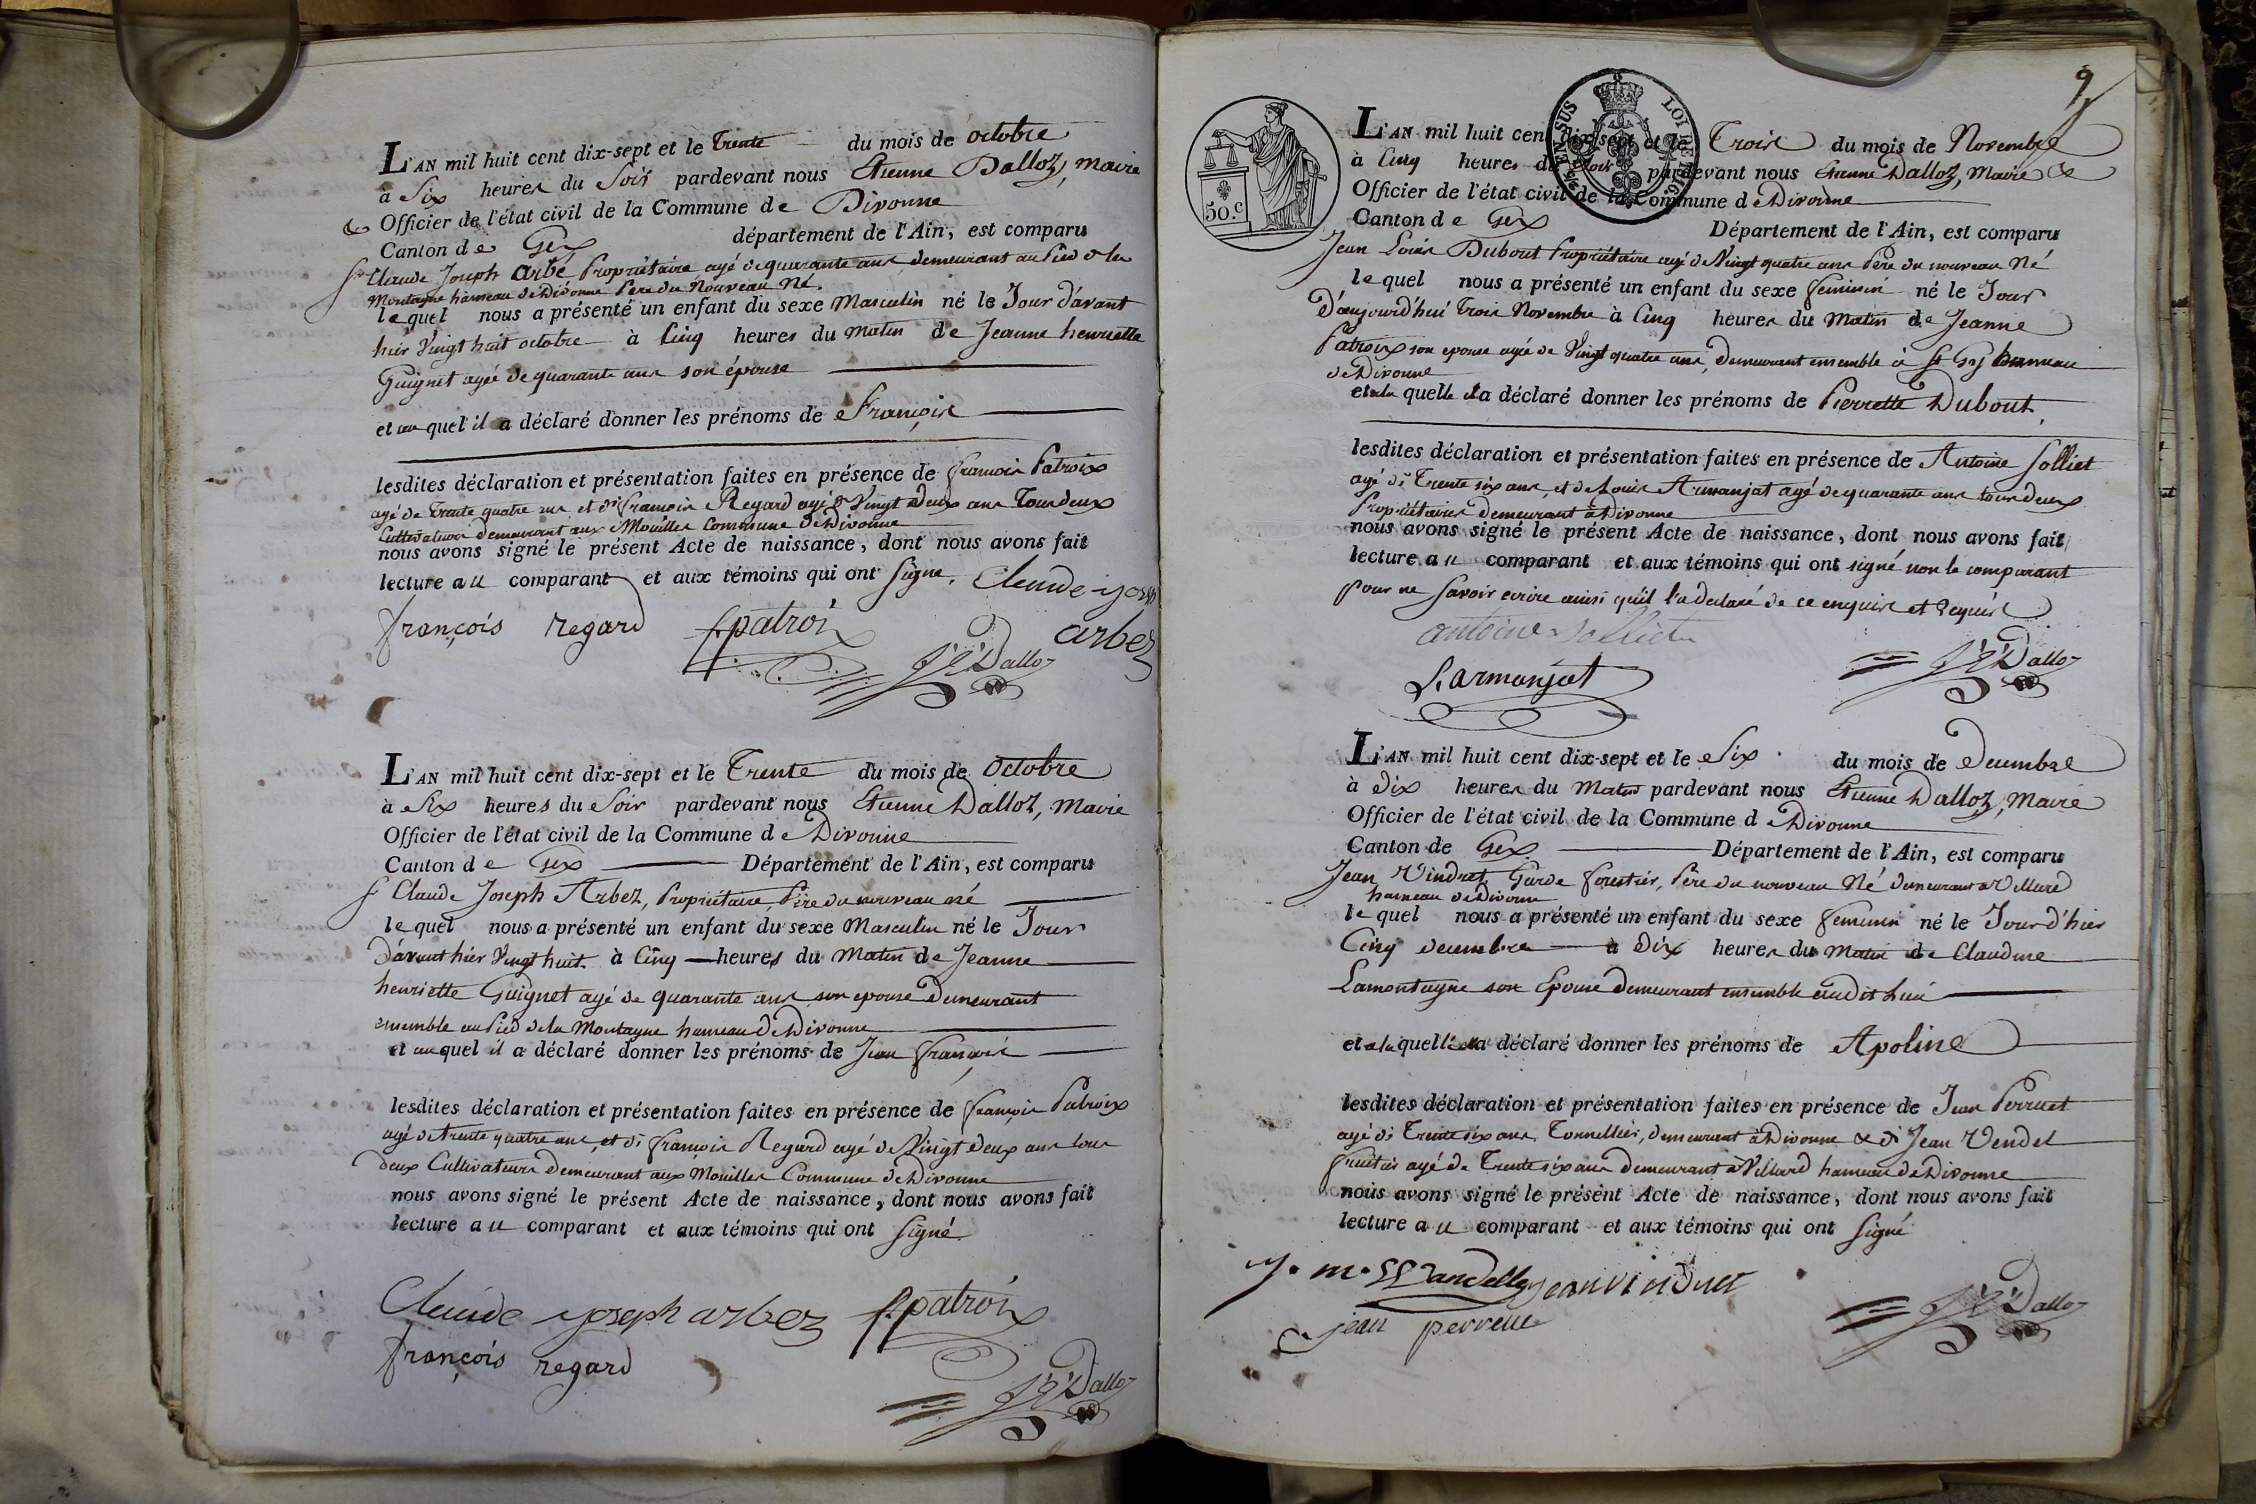 L'AN mil huit cent dix-sept et le Trente du mois de octobre
à Six heures du Soir pardevant nous Etienne Dalloz, Maire
& Officier de l'état civil de la Commune de Divonne
Canton de Gex département de l'Ain, est comparu
Sr Claude Joseph Arbé Propriétaire agé de quarante ans demeurant au Pied de la
Montagne hameau de Divonne Père du Nouveau Né.
lequel nous a présenté un enfant du sexe Masculin né le Jour d'avant
hier Vingt huit octobre à Cinq heures du Matin de Jeanne henriette
Guignet agée de quarante ans son épouse
et au quel il a déclaré donner les prénoms de François
lesdites déclaration et présentation faites en présence de françois Patroix
agé de Trente quatre ans et de françois Regard agé de Vingt Deux ans Tous deux
Cultivateurs demeurant aux Mouilles Commune de Divonne
nous avons signé le présent Acte de naissance, dont nous avons fait
lecture au comparant et aux témoins qui ont Signé. Claude
françois regard fpatroix arbez
Dalloz
L'AN mil huit cent dix-sept et le Trente du mois de Octobre
à Six heures du Soir pardevant nous Etienne Dalloz, Maire
Officier de l'état civil de la Commune de Divonne
Canton de Gex Département de l'Ain, est comparu
Sr Claude Joseph Arbez, Propriétaire, Père du nouveau né
lequel nous a présenté un enfant du sexe Masculin né le Jour
d'avant hier Vingt huit à Cinq heures du Matin de Jeanne
henriette Guignet agé de quarante ans son epouse Demeurant
ensemble au Pied de la Montagne hameau de Divonne
et auquel il a déclaré donner les prénoms de Jean françois
lesdites déclaration et présentation faites en présence de françois Patroix
agé de trente quatre ans et de françois Regard agé de Vingt deux ans tous
deux Cultivateurs Demeurant aux Mouilles Commune de Divonne
nous avons signé le présent Acte de naissance, dont nous avons fait
lecture au comparant et aux témoins qui ont Signé
Claude joseph arbez fpatroix
françois regard
Dalloz
9
50.c
EN SUS
LOI DE 1816.
L'AN mil huit cent dix-sept et le Trois du mois de Novembre
à Cinq heures du Soir pardevant nous Etienne Dalloz, Maire &
Officier de l'état civil de la Commune de Divonne
Canton de Gex Département de l'Ain, est comparu
Jean Louis Dubout Propriétaire agé de Vingt quatre ans Père du nouveau Né
lequel nous a présenté un enfant du sexe feminin né le Jour
D'aujourd'hui Trois Novembre à Cinq heures du Matin de Jeanne
Patroix son epouse agée de Vingt quatre ans, demeurant ensemble à St Gy hameau
de Divonne
et a la quelle il a déclaré donner les prénoms de Pierrette Dubout.
lesdites déclaration et présentation faites en présence de Antoine Solliet
agé de Trente six ans, et de Louis Armanjat agé de quarante ans tous deux
Propriétaires demeurant à Divonne
nous avons signé le présent Acte de naissance, dont nous avons fait
lecture au comparant et aux témoins qui ont signé non le comparant
pour ne Savoir ecrire ainsi qu'il l'a déclaré de ce enquis et requis
antoine Solliet
L. armanjat Dalloz
L'AN mil huit cent dix-sept et le Six du mois de Decembre
à Dix heures du Matin pardevant nous Etienne Dalloz, Maire
Officier de l'état civil de la Commune de Divonne
Canton de Gex Département de l'Ain, est comparu
Jean Vindret Garde forestier, Père du nouveau Né demeurant a Villard
hameau de Divonne
lequel nous a présenté un enfant du sexe feminin né le Jour d'hier
Cinq decembre à Dix heures du Matin de Claudine
Lamontagne son Epouse demeurant ensemble audit lieu
et a la quelle a déclaré donner les prénoms de Apoline
lesdites déclaration et présentation faites en présence de Jean Perruet
agé de Trente six ans, Tonnellier, demeurant à Divonne & de Jean Vendel
fruitier agé de Trente six ans demeurant à Villard hameau de Divonne
nous avons signé le présent Acte de naissance, dont nous avons fait
lecture au comparant et aux témoins qui ont Signé
j. m. jean vindret
jean Dalloz